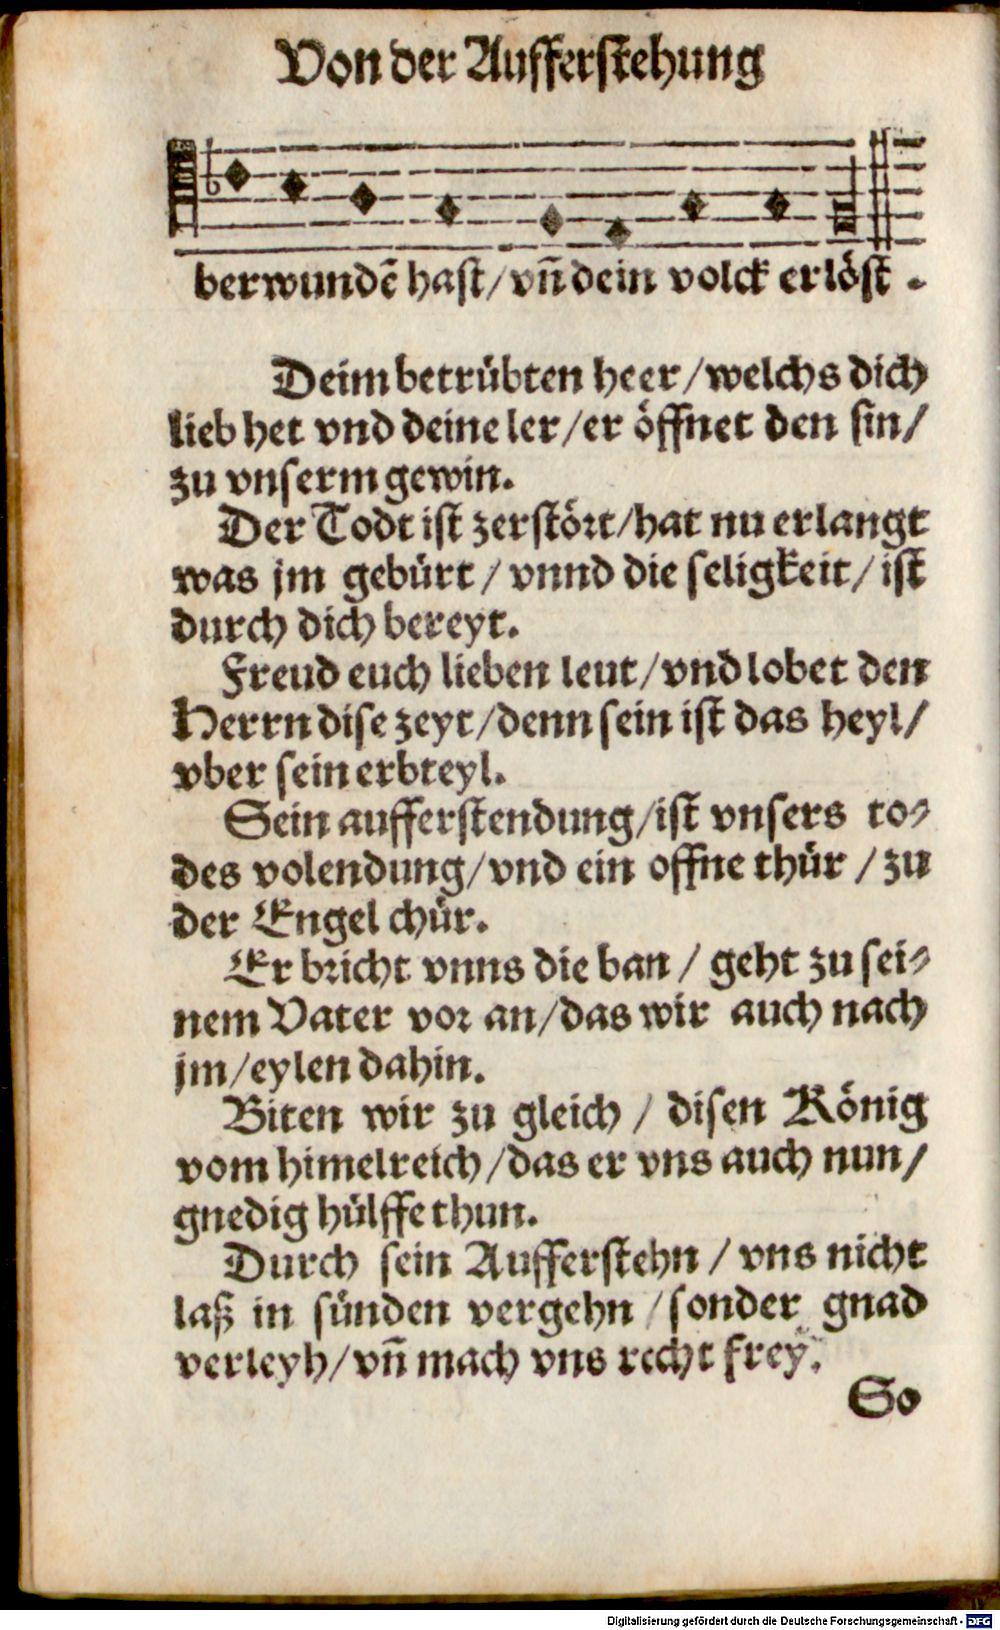 Von der Aufferstehung
berwundē hast/vñ dein volck erlöst.
Deim betrübten heer/welchs dich
lieb het vnd deine ler/er öffnet den sin/
zu vnserm gewin.
Der Todt ist zerstört/hat nu erlangt
was jm gebürt/vnnd die seligkeit/ist
durch dich bereyt.
Freud euch lieben leut/vnd lobet den
Herrn dise zeyt/denn sein ist das heyl/
vber sein erbteyl.
Sein aufferstendung/ist vnsers to-
des volendung/vnd ein offne thür/zu
der Engel chür.
Er bricht vnns die ban/geht zu sei-
nem Vater vor an/das wir auch nach
jm/eylen dahin.
Biten wir zu gleich/disen König
vom himelreich/das er vns auch nun/
gnedig hülffe thun.
Durch sein Aufferstehn/vns nicht
laß in sünden vergehn/sonder gnad
verleyh/vñ mach vns recht frey.
So
Digitalisierung gefördert durch die Deutsche Forschungsgemeinschaft - DFG